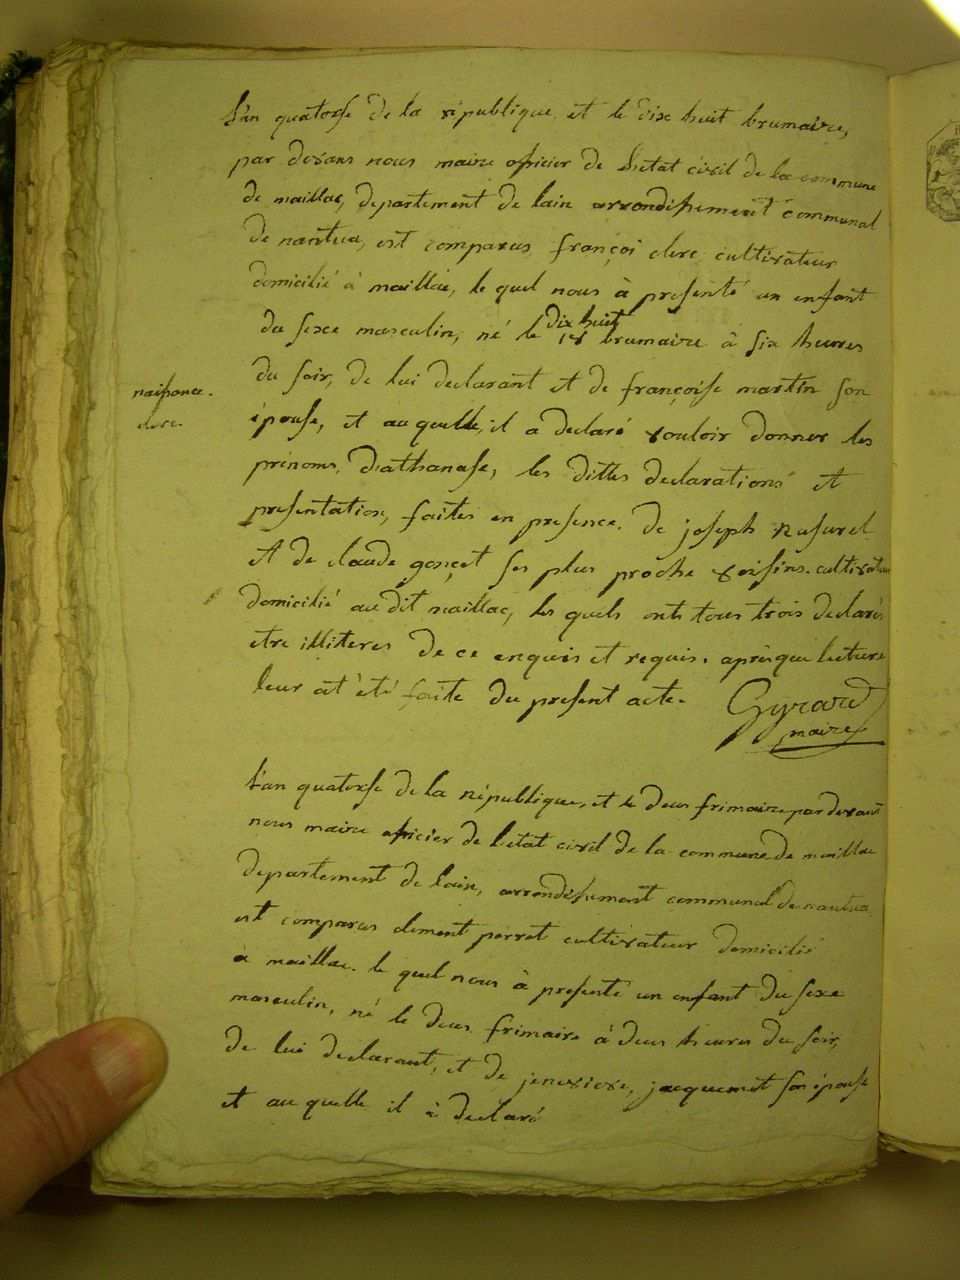 L'an quatorse de la république et le dix huit brumaire,
par devans nous maire oficier de l'hetat civil de la commune
de maillac, departement de lain arrondissement communal
de nantua, est comparus françoi clerc cultivateur
domicilié à maillac, le quel nous à presenté un enfant
du sexe masculin, né le dix huit 18 brumaire à six heures
du soir, de lui declarant et de françoise martin son
naissance.
clerc.
épouse, et au quelle, il a declaré vouloir donner les
prénoms, d'athanase, les dittes declarations et
presentation, faites en presence. de joseph
et de claude gonçet ses plus proche voisins. cultivateur
domicilié au dit maillac, les quels onts tous trois declarés
etre illiteres de ce enquis et requis. après que lecture
leur at été faite du present acte.
Gyrard
maire
L'an quatorse de la république, et le deus frimaire par devant
nous maire oficier de l'etat civil de la commune de maillac
departement de lain, arrondissement communal de nantua
est comparus clement perret cultivateur domicilié
à maillac. le quel nous à presenté un enfant du sexe
masculin, né le deus frimaire à deus heures du soir,
de lui declarant, et de jenevieve, jacquemet son épouse
et au quelle il à declaré